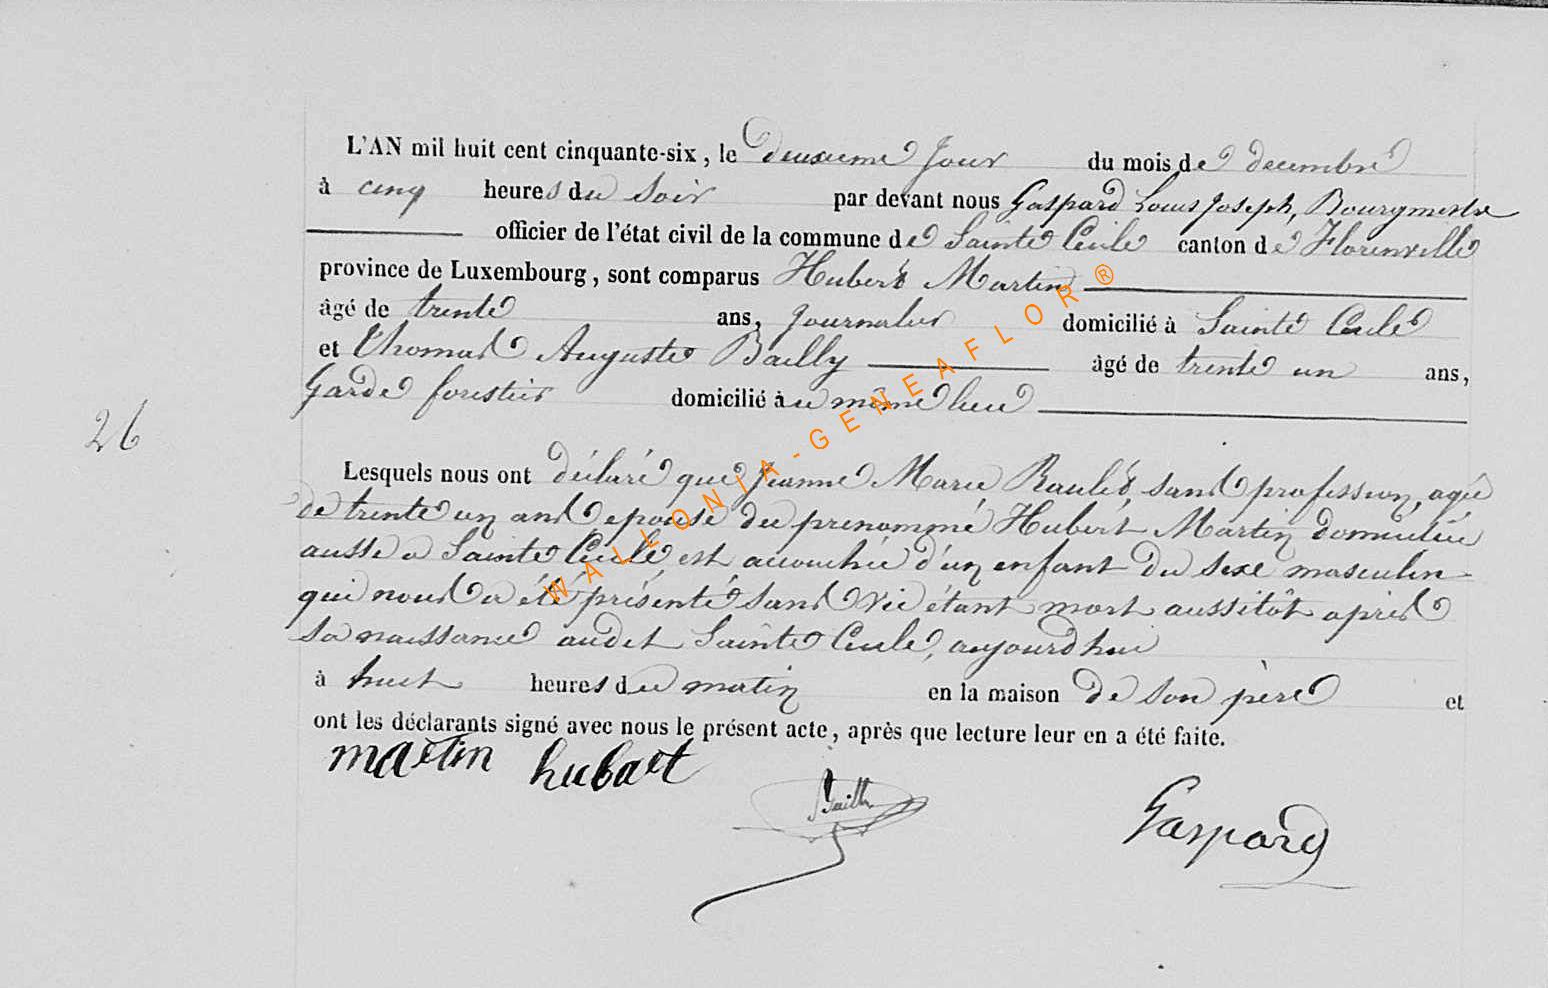 L'AN mil huit cent cinquante-six, le deuxieme jour du mois de decembre
à cinq heures du soir par devant nous Gaspard Louis Joseph, Bourgmestre
officier de l'état civil de la commune de Sainte Cecile canton de Florenville
province de Luxembourg, sont comparus Hubert Martin
âgé de trente ans, journalier domicilié à Sainte Cecile
et Thomas Auguste Bailly âgé de trente un ans,
Garde forestier domicilié au même lieu
26
Lesquels nous ont déclaré que Jeanne Marie sans profession, agée
de trente un ans epouse du prenommé Hubert Martin domiciliée
aussi a Sainte Cecile est accouchée d'un enfant du sexe masculin
qui nous a été présenté sans vie étant mort aussitôt après
sa naissance audit Sainte Cecile, aujourd'hui
à huit heures du matin en la maison de son père et
ont les déclarants signé avec nous le présent acte, après que lecture leur en a été faite.
martin hubert
Bailly
Gaspard
WALLONIA-GENEAFLOR®